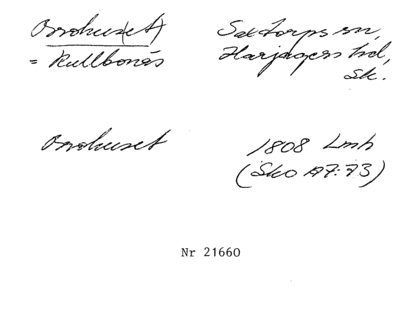 Orrahuset Saxtorps sn,
= Kullbonäs Harjagers hd,
Sk.
Orrahuset 1808 Lmh
(Sko A7:73)
Nr 21660